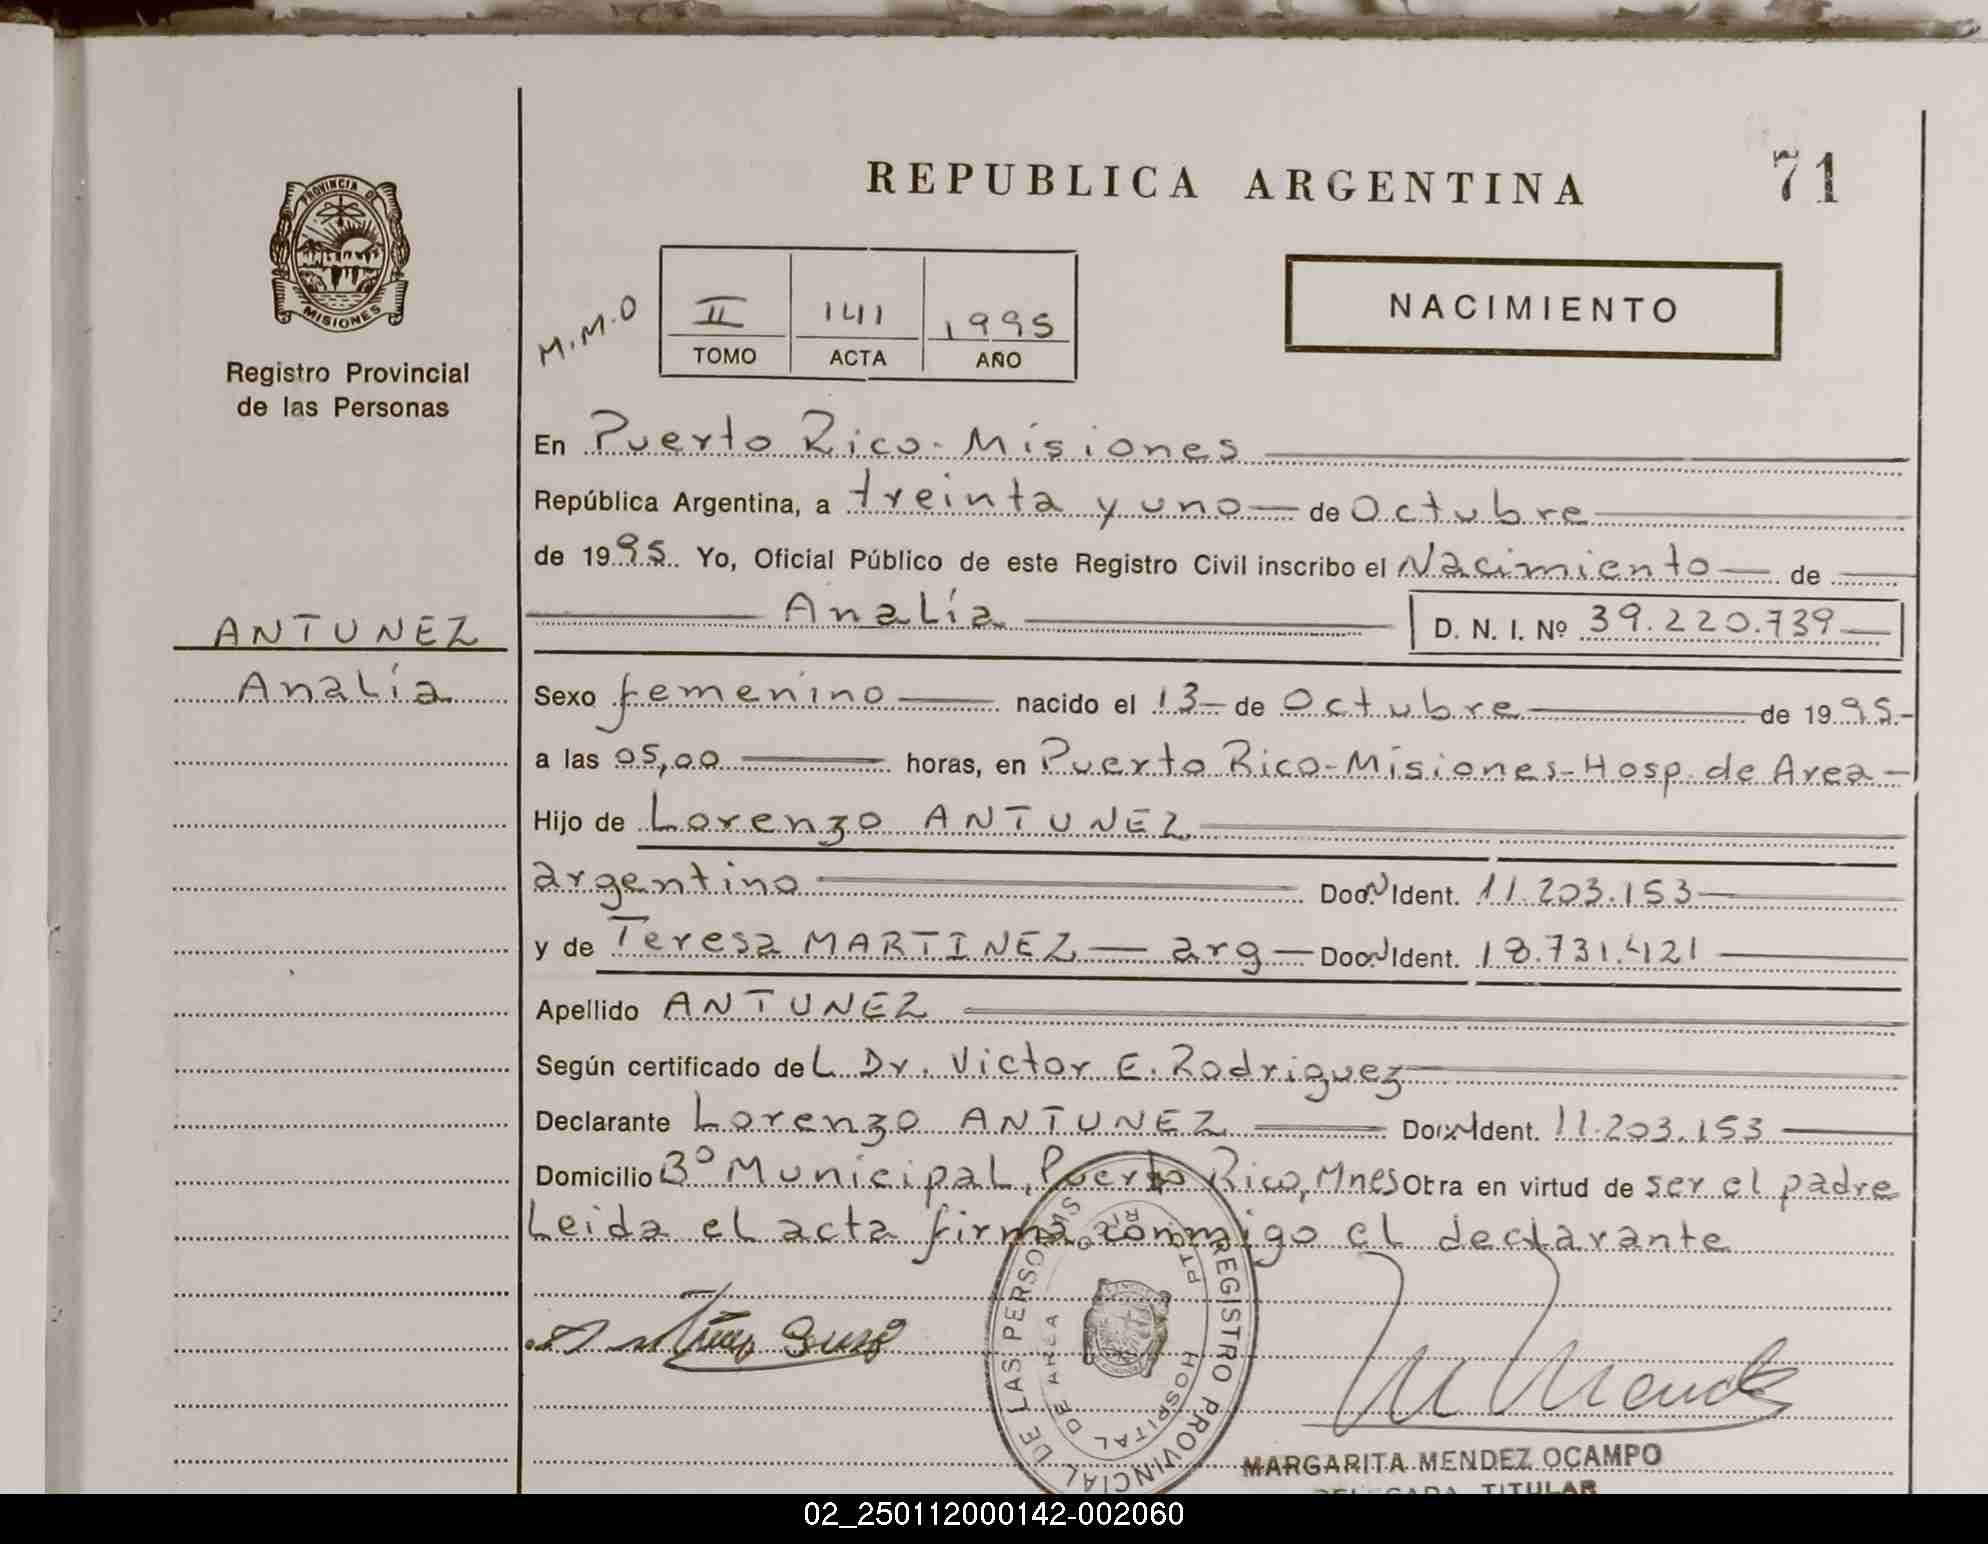 REPUBLICA ARGENTINA
71
PROVINCIA DE
MISIONES
Registro Provincial
de las Personas
M.M.O
II 141 1995
TOMO ACTA AÑO
NACIMIENTO
En Puerto Rico - Misiones
República Argentina, a treinta y uno de Octubre
de 1995. Yo, Oficial Público de este Registro Civil inscribo el Nacimiento de
ANTUNEZ
Analía
Analía D. N. I. Nº 39.220.739
Sexo femenino nacido el 13 de Octubre de 1995.
a las 05,00 horas, en Puerto Rico-Misiones-Hosp. de Area
Hijo de Lorenzo ANTUNEZ
argentino Doc. N Ident. 11.203.153
y de Teresa MARTINEZ arg Doc. N Ident. 18.731.421
Apellido ANTUNEZ
Según certificado del Dr. Victor E. Rodriguez
Declarante Lorenzo ANTUNEZ Doc. N Ident. 11.203.153
Domicilio Bº Municipal, Puerto Rico, Mnes Obra en virtud de ser el padre
Leida el acta firma conmigo el declarante
REGISTRO PROVINCIAL DE LAS PERSONAS
HOSPITAL DE AREA
PTO. RICO
MARGARITA MENDEZ OCAMPO
TITULAR
02_250112000142-002060